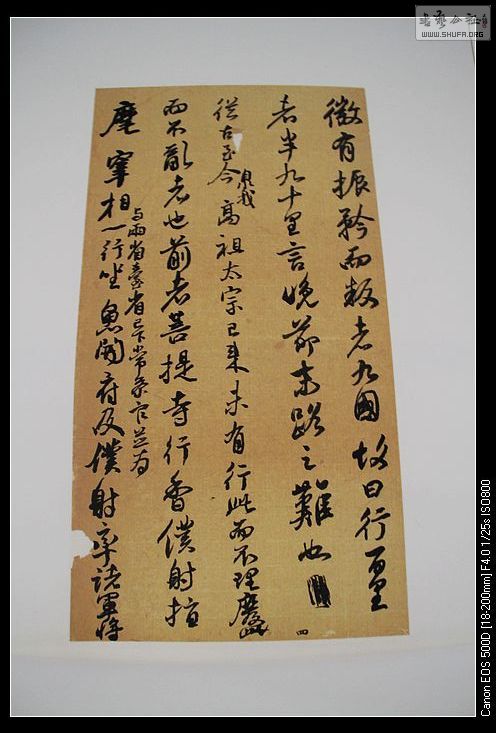 書藝公社
WWW.SHUFA.ORG
微有振矜而叛者九國故曰行百里
者半九十里言晚節末路之難也
從古至今我高祖太宗已來未有行此而不理廢此
而不亂者也前者菩提寺行香僕射指
麾宰相與兩省臺省已下常參官並為一行坐魚開府及僕射率諸軍將
四
Canon EOS 500D [18-200mm] F4.0 1/25s ISO800